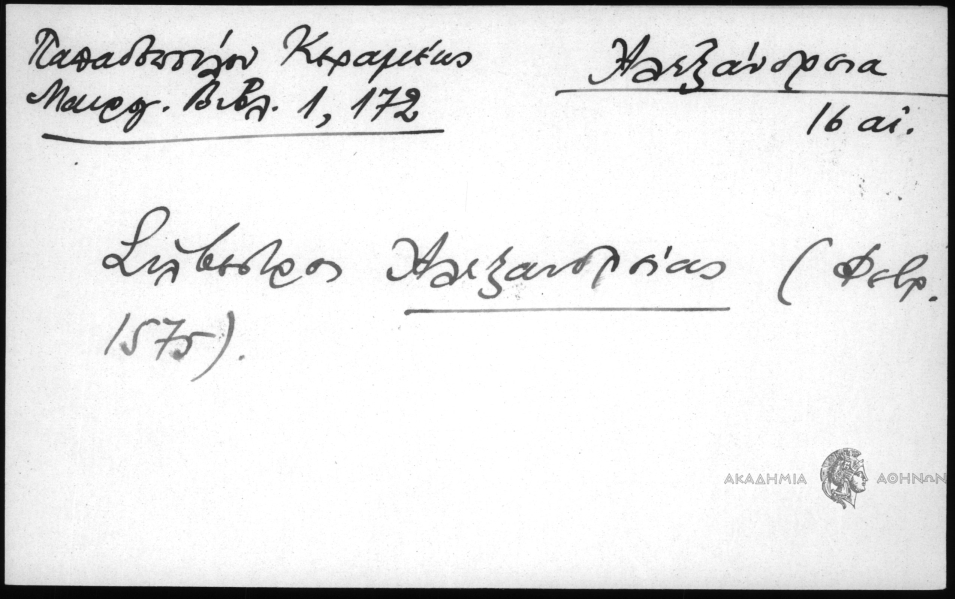 Παπαδοπούλου Κεραμέως
Μαυρογ. Βιβλ. 1, 172
Αλεξάνδρεια
16 αἰ.
Σίλβεστρος Αλεξανδρείας (Φεβρ.
1575).
ΑΚΑΔΗΜΙΑ ΑΘΗΝΩΝ